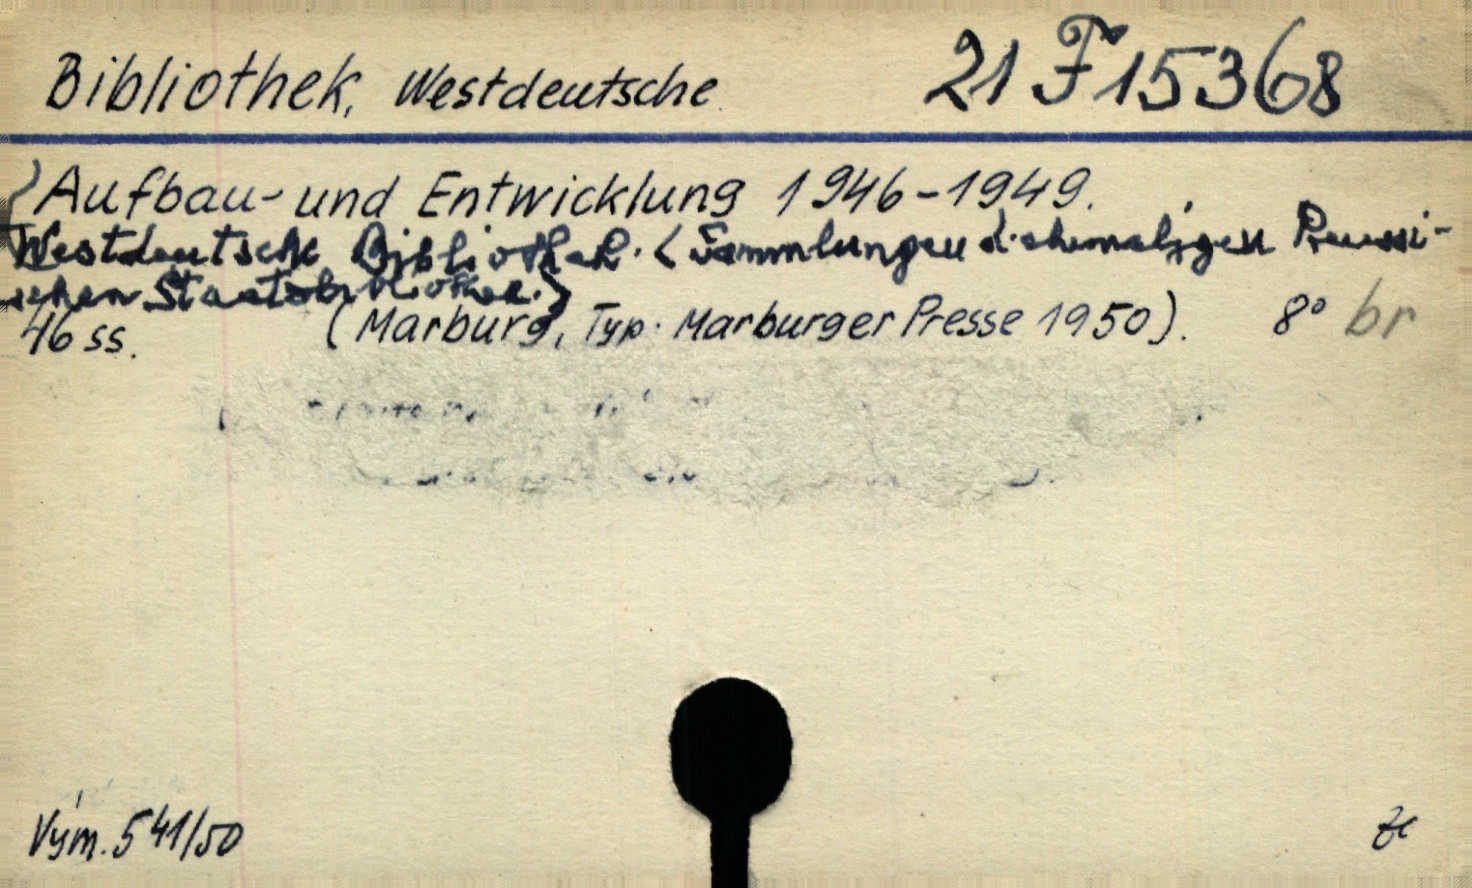 Bibliothek, Westdeutsche 21 F 15368
Aufbau- und Entwicklung 1946-1949.
Westdeutsche Bibliothek. <Sammlungen d. ehemaligen Preussi-
schen Staatsbibliothek.>
46 ss. (Marburg, Typ. Marburger Presse 1950). 8° br
Vým. 541/50